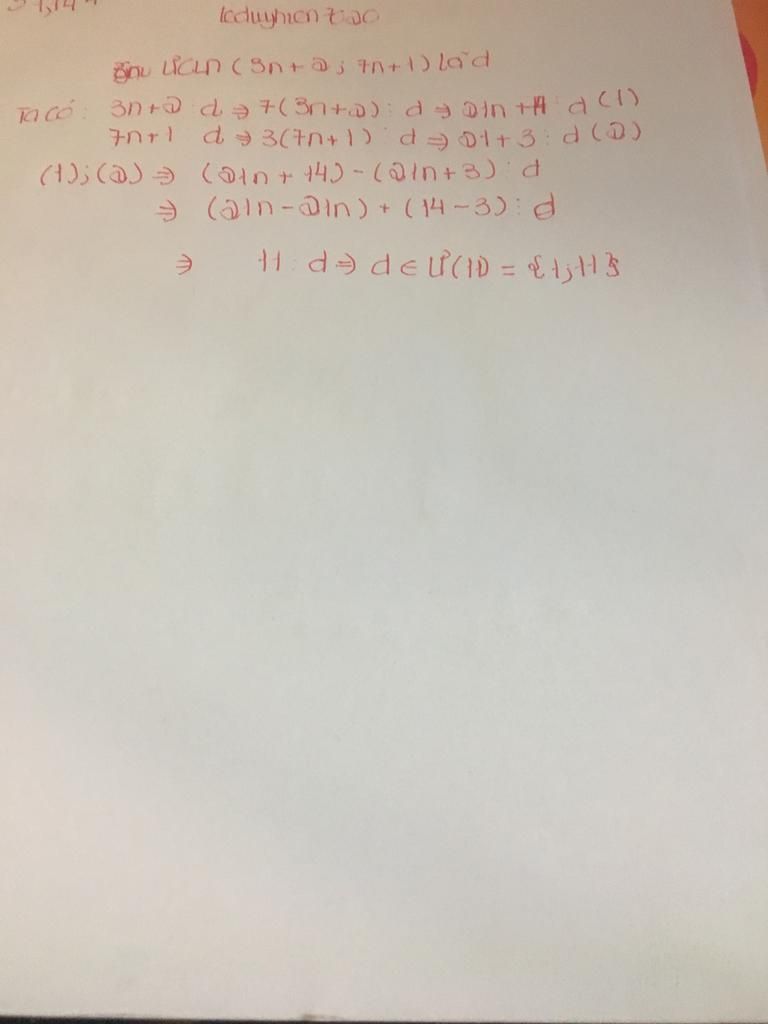 leduyhien 7a20
ƯCLN (3n + 2; 7n+1) là d
Ta có: 3n+2 ⋮ d ⇒ 7(3n+2) ⋮ d ⇒ 21n + 14 ⋮ d (1)
7n+1 ⋮ d ⇒ 3(7n+1) ⋮ d ⇒ 21+3 ⋮ d (2)
(1); (2) ⇒ (21n + 14) - (21n+3) ⋮ d
⇒ (21n - 21n) + (14-3) ⋮ d
⇒ 11 ⋮ d ⇒ d ∈ Ư(11) = {1; 11}